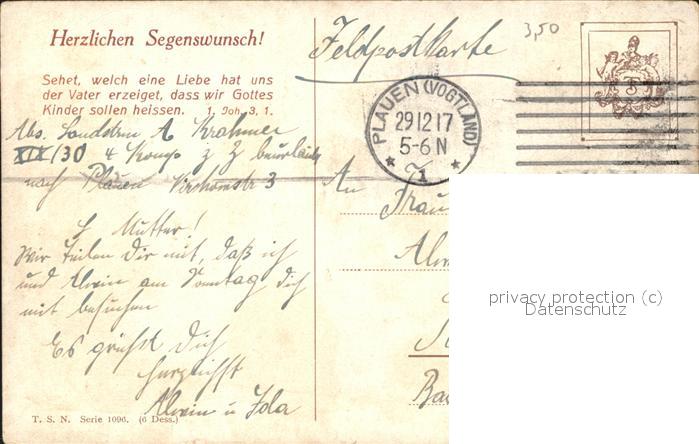 Herzlichen Segenswunsch!
Feldpostkarte
3,50
Sehet, welch eine Liebe hat uns
der Vater erzeiget, dass wir Gottes
Kinder sollen heissen. 1. Joh. 3, 1.
PLAUEN (VOGTLAND)
29 12 17
5-6 N
* 1 *
Abs. Landstrm A Krahmer
XIX/30 4 Komp z Z beurlaubt
nach Plauen 3
An
Frau
L Mutter!
Wir teilen Dir mit, daß ich
und Alwin am Sonntag Dich
mit besuchen
Es grüßt Dich
herzlichst
Alwin u Ida
privacy protection (c)
Datenschutz
T. S. N. Serie 1096. (6 Dess.)